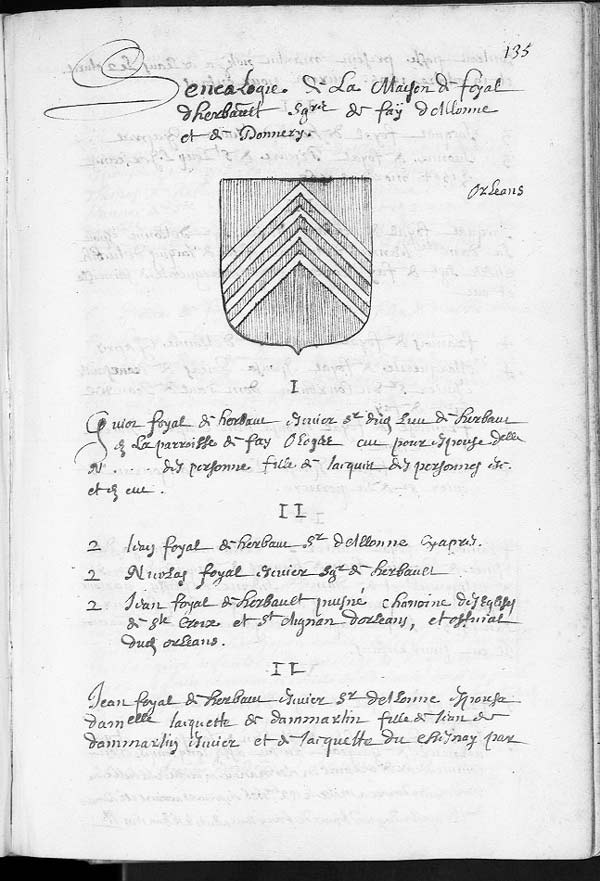 135
Genealogie de La Maison de foyal
dherbault sgrie de fay dallonne
et de Donnery.
Orleans
I
Guiot foyal de herbaut escuier sr dud lieu de herbaut
en La parroisse de fay Oloyes eut pour espouse delle
N. . . . des personne fille de Jacques des personnes esc.
et en eut.
II
2 Jean foyal de herbaut sr dallonne cyapres.
2 Nicolas foyal escuier sgr de herbault
2 Jean foyal de herbault puisné chanoine des Eglises
de ste Croix et st Aignan dorleans, et official
dud orleans.
II
Jean foyal de herbaut escuier sr dallonne espousa
damelle Jacquette de dammartin fille de Jean de
dammartin escuier et de Jacquette du chesnay par